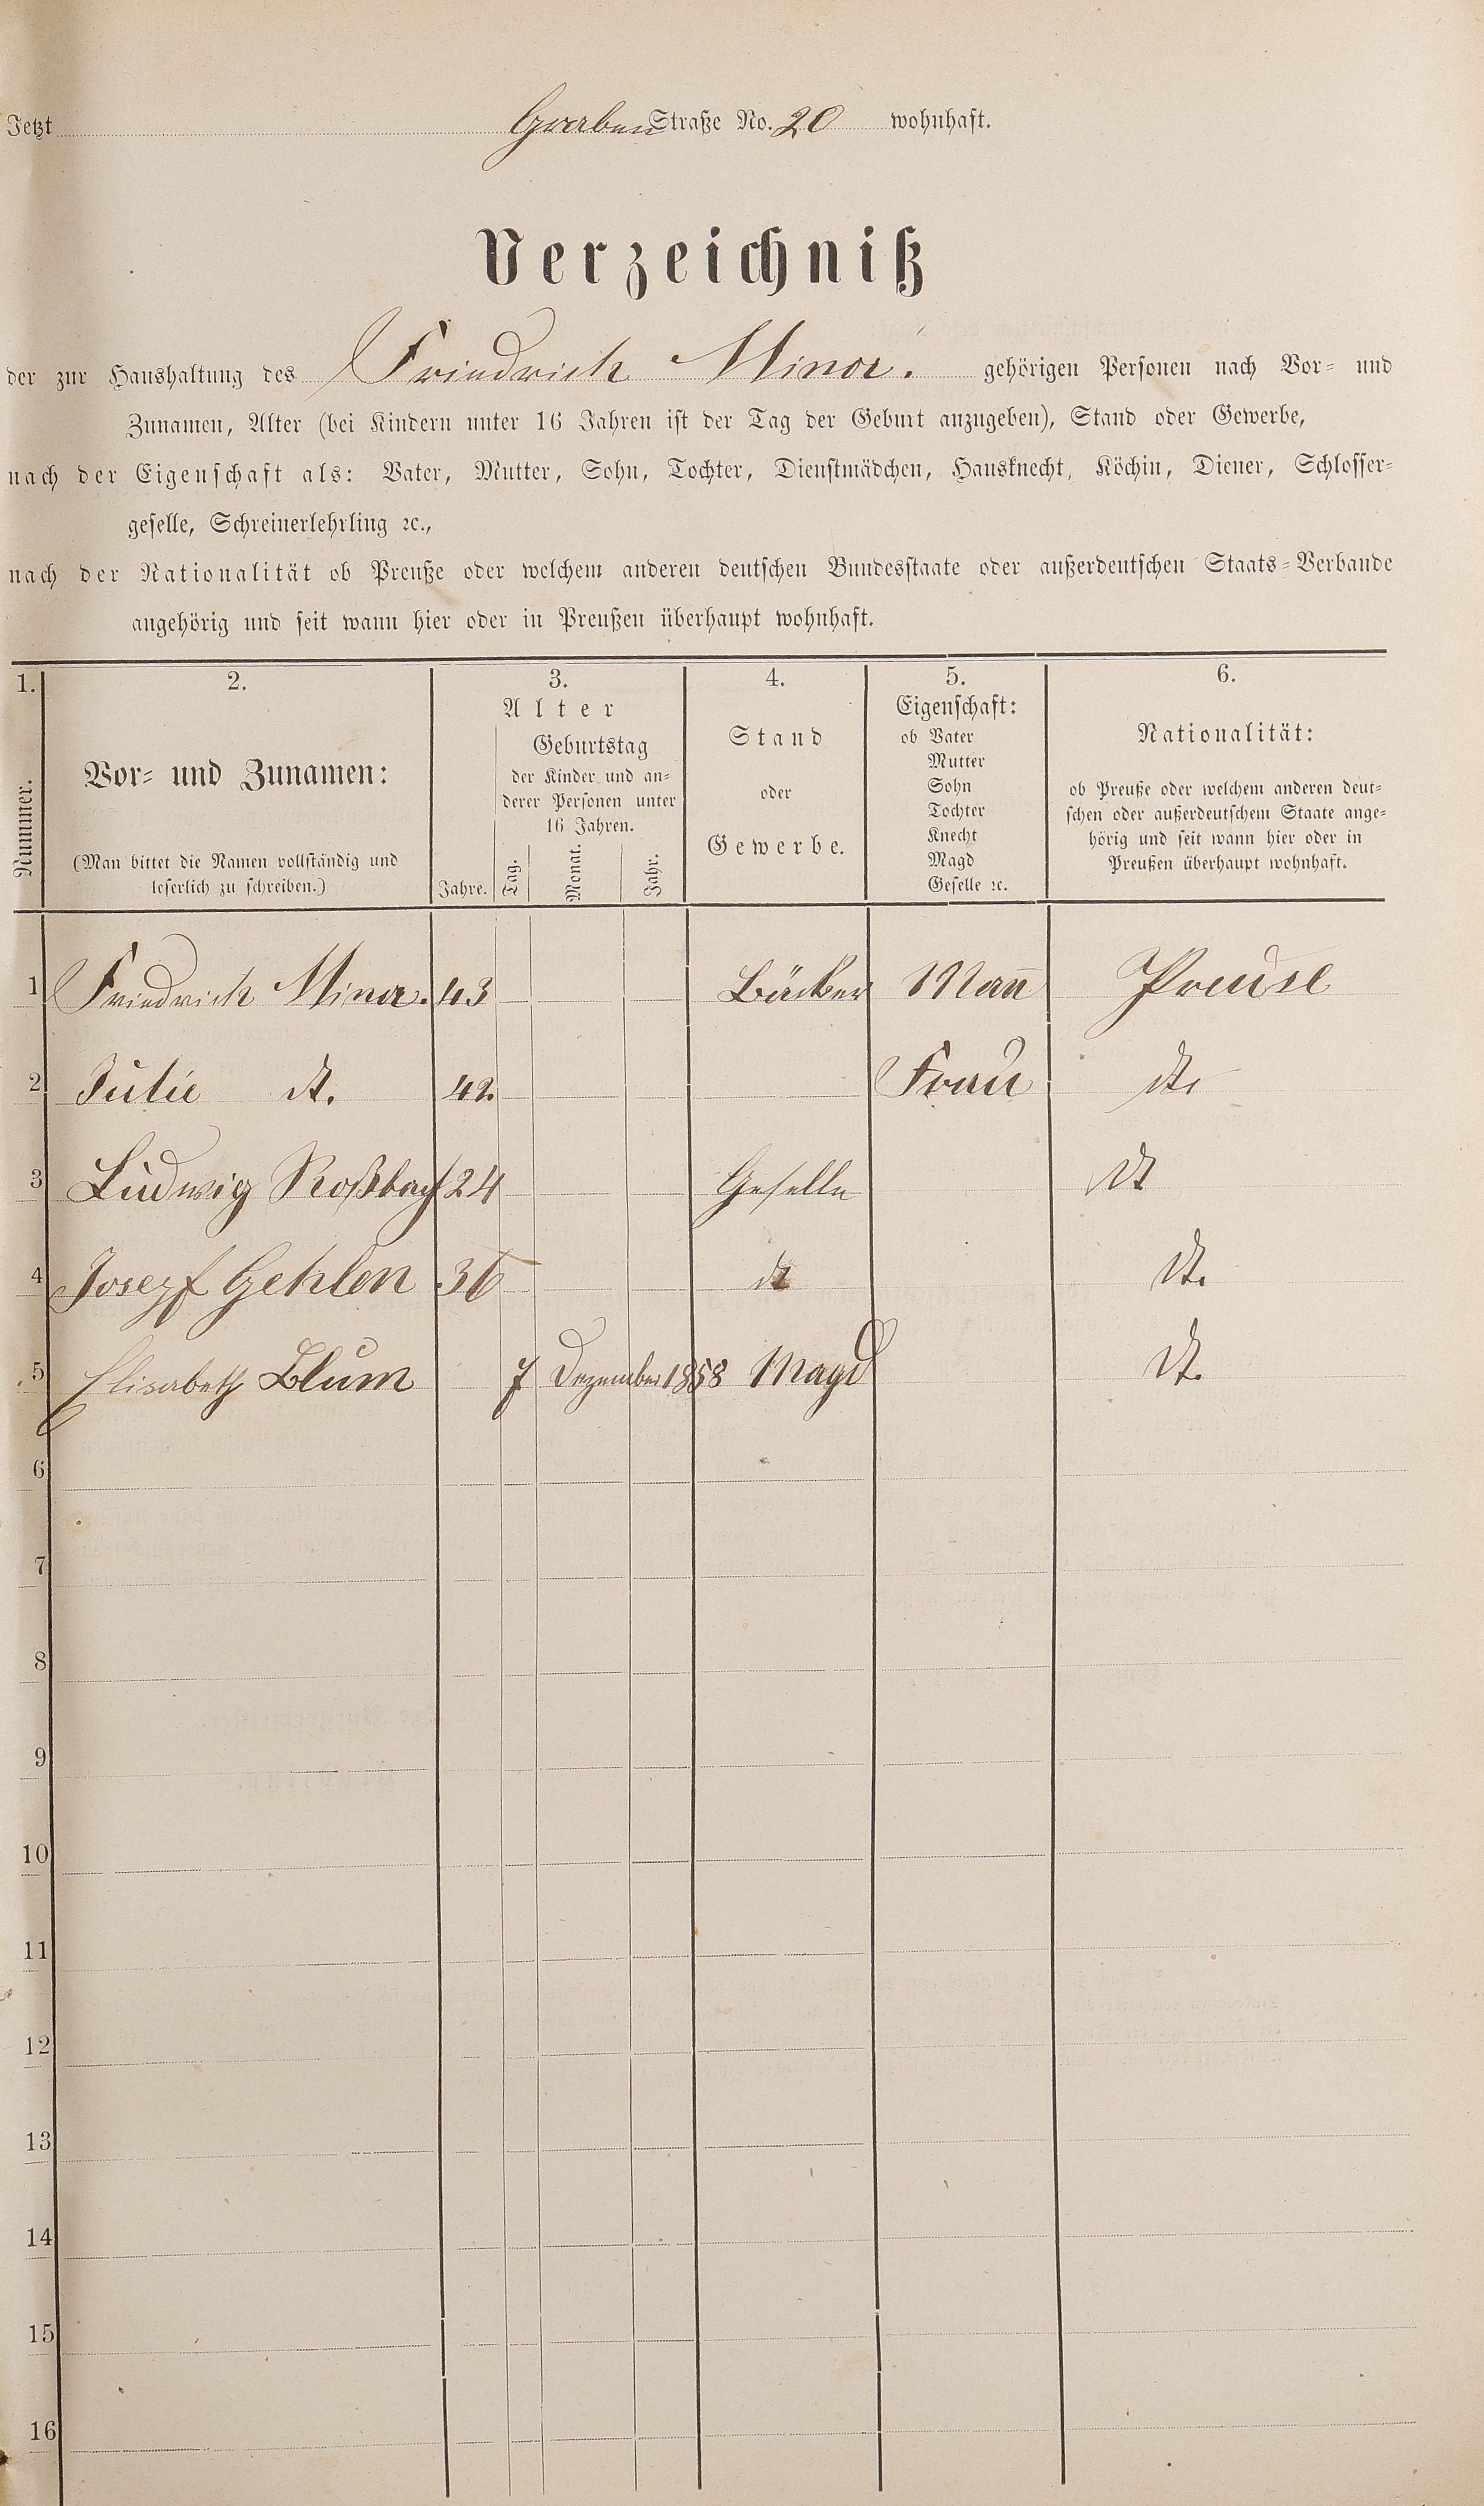 Jetzt Graben Straße No. 20 wohnhaft.
Verzeichniß
der zur Haushaltung des Friedrich Minor. gehörigen Personen nach Vor- und
Zunamen, Alter (bei Kindern unter 16 Jahren ist der Tag der Geburt anzugeben), Stand oder Gewerbe,
nach der Eigenschaft als: Vater, Mutter, Sohn, Tochter, Dienstmädchen, Hausknecht, Köchin, Diener, Schlosser-
geselle, Schreinerlehrling ꝛc.,
nach der Nationalität ob Preuße oder welchem anderen deutschen Bundesstaate oder außerdeutschen Staats-Verbande
angehörig und seit wann hier oder in Preußen überhaupt wohnhaft.
1. 2. 3. 4. 5. 6.
Nummer.
Vor- und Zunamen:
(Man bittet die Namen vollständig und
leserlich zu schreiben.)
Alter
Jahre.
Geburtstag
der Kinder und an-
derer Personen unter
16 Jahren.
Tag. Monat. Jahr.
Stand
oder
Gewerbe.
Eigenschaft:
ob Vater
Mutter
Sohn
Tochter
Knecht
Magd
Geselle ꝛc.
Nationalität:
ob Preuße oder welchem anderen deut-
schen oder außerdeutschem Staate ange-
hörig und seit wann hier oder in
Preußen überhaupt wohnhaft.
1 Friedrich Minor. 43 Bäcker Man̄ Preuse
2 Julie dt. 42. Frau dt.
3 Ludwig Roßbach 24 Geselle dt
4 Josepf Gehlen 36 dt dt.
5 Elisabeth Blum 7 Dezember 1858 Magd dt.
6
7
8
9
10
11
12
13
14
15
16